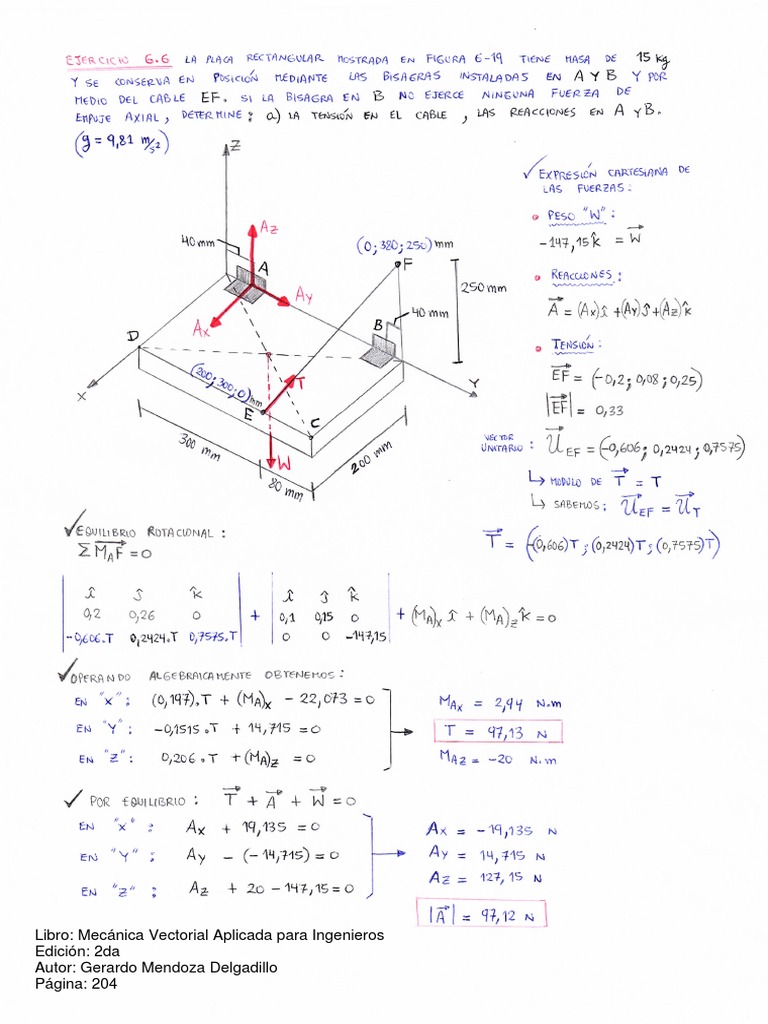 EJERCICIO 6.6 LA PLACA RECTANGULAR MOSTRADA EN FIGURA 6-19 TIENE MASA DE 15 Kg
Y SE CONSERVA EN POSICIÓN MEDIANTE LAS BISAGRAS INSTALADAS EN A Y B Y POR
MEDIO DEL CABLE EF. SI LA BISAGRA EN B NO EJERCE NINGUNA FUERZA DE
EMPUJE AXIAL, DETERMINE: a) LA TENSIÓN EN EL CABLE, LAS REACCIONES EN A Y B.
(g = 9,81 m/s²)
Z
40 mm
Az
A
Ay
Ax
(0; 380; 250) mm
F
250 mm
B
40 mm
D
X
Y
(200; 300; 0) mm
T
E
C
W
300 mm
80 mm
200 mm
✓ EXPRESIÓN CARTESIANA DE
LAS FUERZAS:
• PESO "W":
-147,15 k̂ = W⃗
• REACCIONES:
A⃗ = (Ax)î + (Ay)ĵ + (Az)k̂
• TENSIÓN:
EF⃗ = (-0,2; 0,08; 0,25)
|EF⃗| = 0,33
VECTOR UNITARIO: U⃗EF = (-0,606; 0,2424; 0,7575)
↳ MODULO DE T⃗ = T
↳ SABEMOS: U⃗EF = U⃗T
T⃗ = (-(0,606)T; (0,2424)T; (0,7575)T)
✓ EQUILIBRIO ROTACIONAL:
Σ M⃗AF = 0
| î ĵ k̂ | | î ĵ k̂ |
| 0,2 0,26 0 | + | 0,1 0,15 0 | + (MA)x î + (MA)z k̂ = 0
| -0,606.T 0,2424.T 0,7575.T | | 0 0 -147,15 |
✓ OPERANDO ALGEBRAICAMENTE OBTENEMOS:
EN "X": (0,197).T + (MA)x - 22,073 = 0
EN "Y": -0,1515.T + 14,715 = 0
EN "Z": 0,206.T + (MA)z = 0
MAx = 2,94 N.m
T = 97,13 N
MAz = -20 N.m
✓ POR EQUILIBRIO: T⃗ + A⃗ + W⃗ = 0
EN "X": Ax + 19,135 = 0
EN "Y": Ay - (-14,715) = 0
EN "Z": Az + 20 - 147,15 = 0
Ax = -19,135 N
Ay = 14,715 N
Az = 127,15 N
|A⃗| = 97,12 N
Libro: Mecánica Vectorial Aplicada para Ingenieros
Edición: 2da
Autor: Gerardo Mendoza Delgadillo
Página: 204